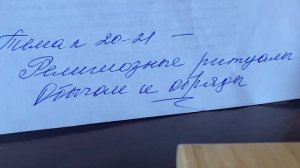 Тема к 20-21 –
Религиозные ритуалы
Обычаи и обряды